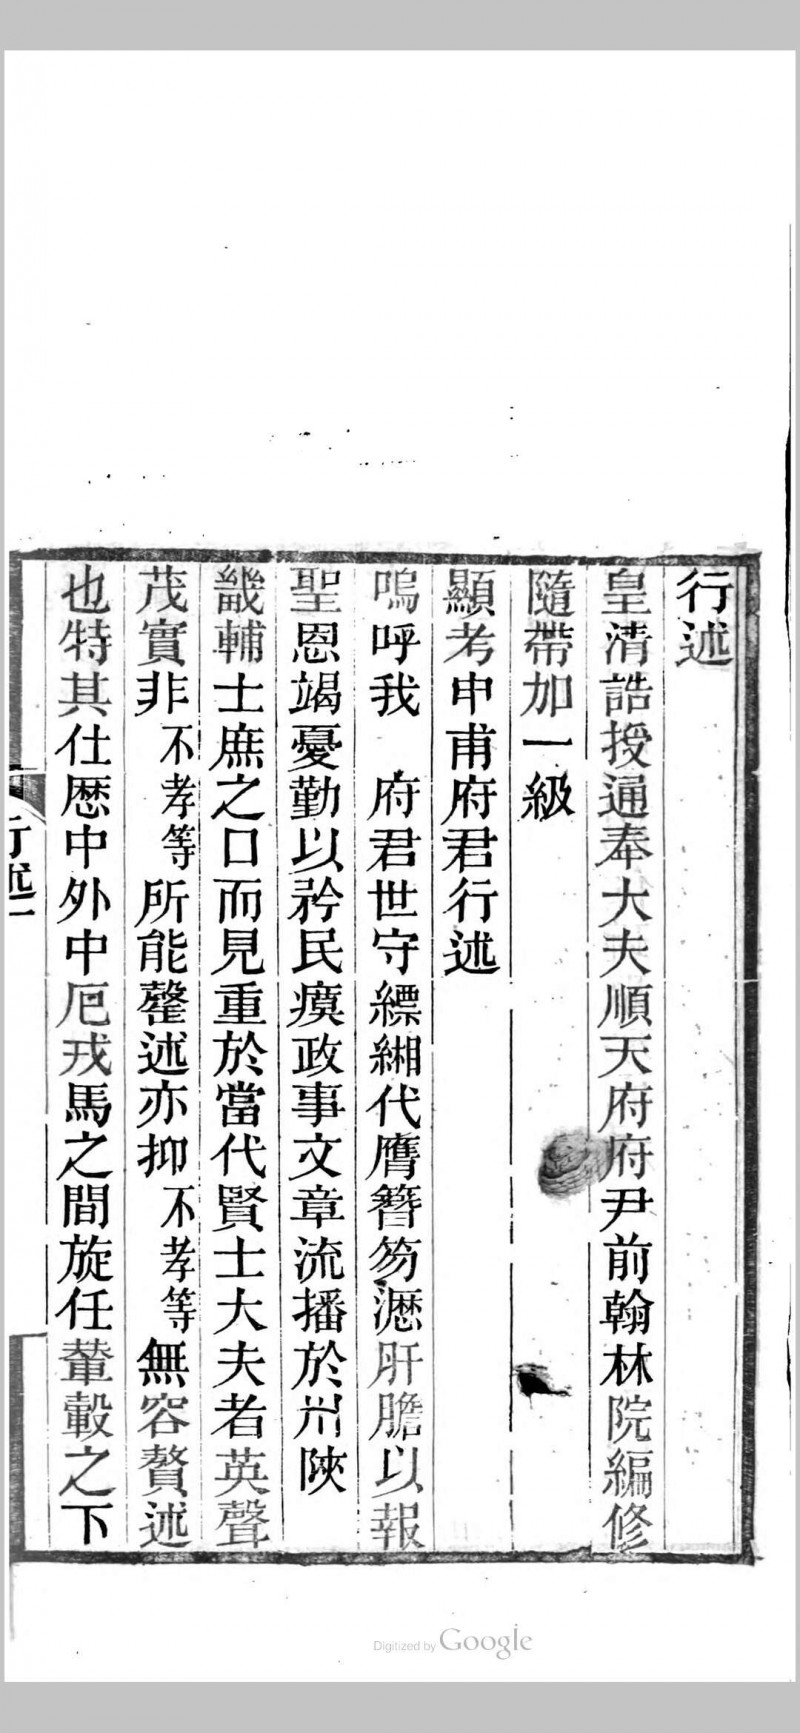 行述
皇清誥授通奉大夫順天府府尹前翰林院編修
隨帶加一級
顯考申甫府君行述
嗚呼我　府君世守縹緗代膺簪笏瀝肝膽以報
聖恩竭憂勤以矜民瘼政事文章流播於川陝
畿輔士庶之口而見重於當代賢士大夫者英聲
茂實非不孝等所能罄述亦抑不孝等無容贅述
也特其仕歷中外中厄戎馬之間旋任輦轂之下
行述一
Digitized by Google